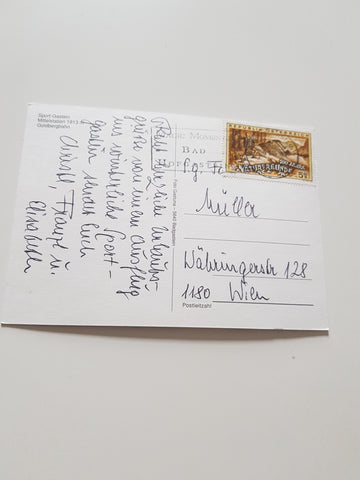 Sport-Gastein
Mittelstation 1913 m
Goldbergbahn
Recht herzliche Urlaubs-
grüße von einem Ausflug
ins winterliche Sport-
gastein senden Euch
Christl, Franzl u.
Elisabeth
Foto Gerluma – 5642 Badgastein
BAD
HOFGASTEIN
REPUBLIK ÖSTERREICH
NATURFREUNDE
5 S
Fg. Fr.
Müller
Währingerstr 128
1180 Wien
Postleitzahl